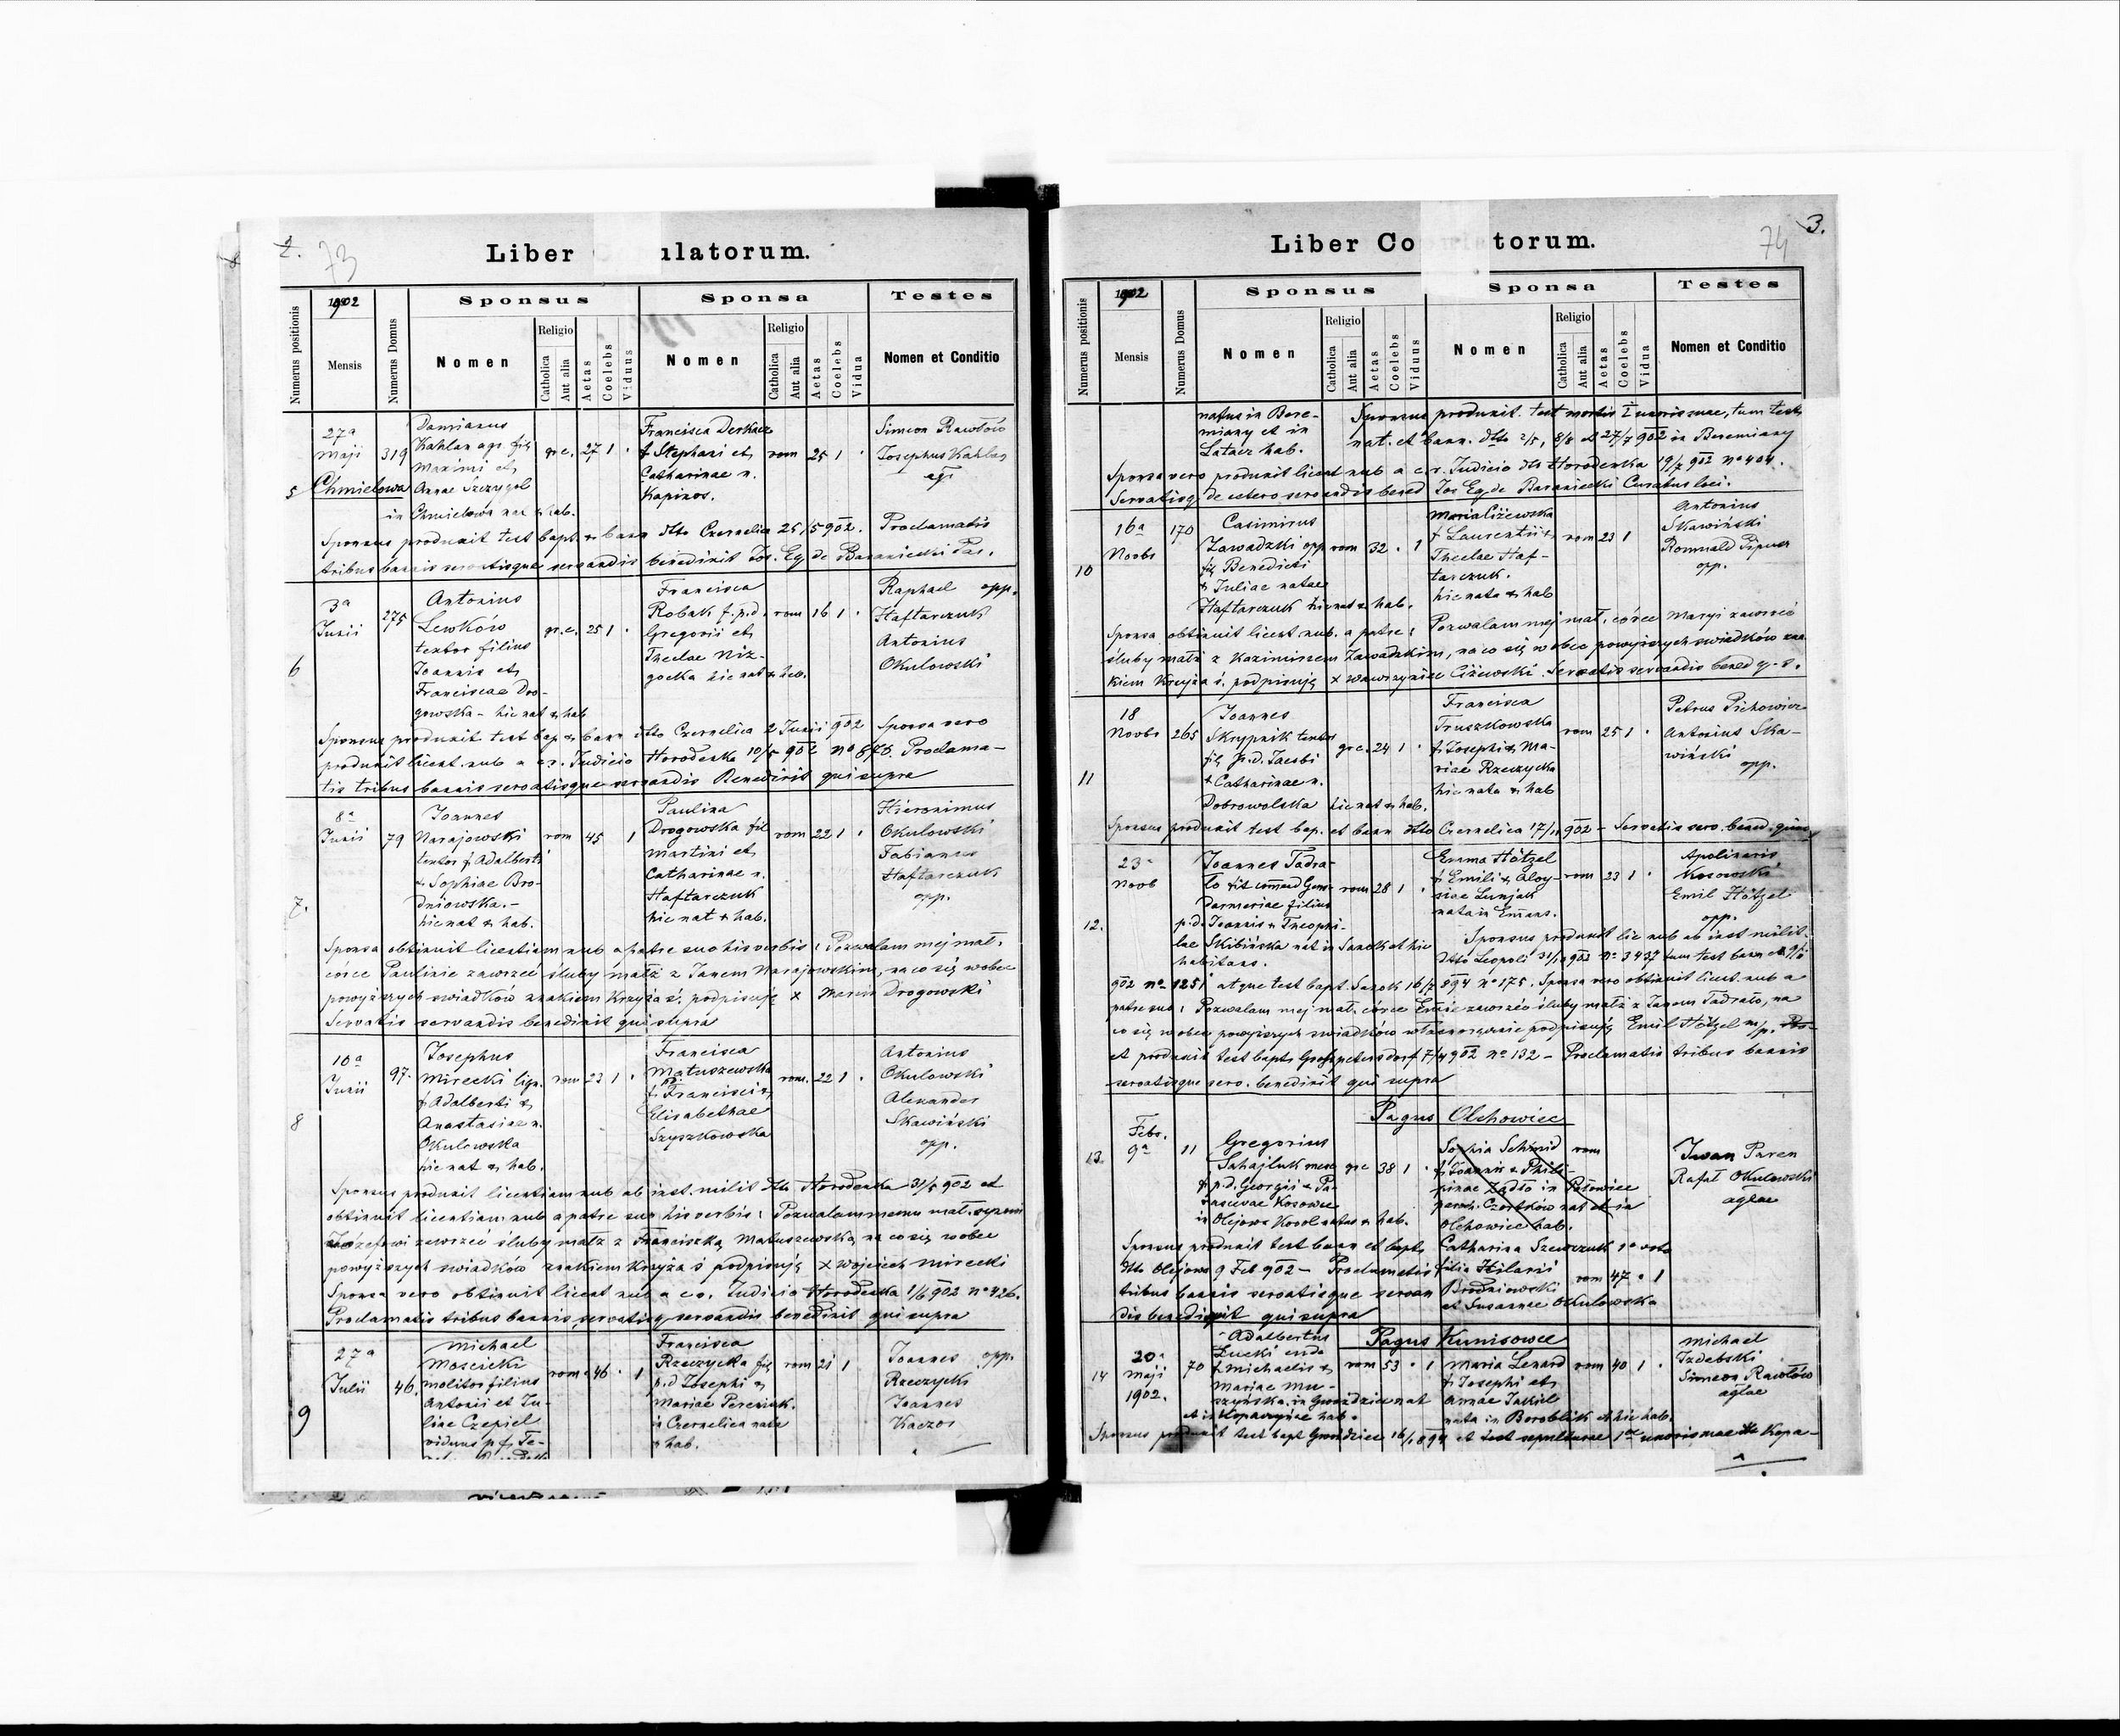 2.
73
Liber ulatorum.
Numerus positionis
1902
Mensis
Numerus Domus
Sponsus
Nomen
Religio
Catholica
Aut alia
Aetas
Coelebs
Viduus
Sponsa
Nomen
Religio
Catholica
Aut alia
Aetas
Coelebs
Vidua
Testes
Nomen et Conditio
5
27a
Maji
Chmielowa
319
Damianus
Kahlan agr. filj
Maximi et
Annae Szczygol
in Chmielowa nat & hab.
gr.c.
27
1
Francisca Derkacz
f Stephani et
Catharinae n.
Kapinos.
rom
25
1
Simeon Rawłów
Josephus Kahlan
agr
Sponsus produxit test bapt. & bann dtto Czernelica 25/5 902. Proclamatis
tribus bannis servatisque servandis benedixit Jos. Eq. de Baraniecki Par.
6
3a
Junii
275
Antonius
Lewków
textor filius
Joannis et
Franciscae Dro-
gowska - hic nat & hab
gr.c.
25
1
Francisca
Robak f. p.d.
Gregorii et
Theclae Niz-
gocka hic nat & hab.
rom
16
1
Raphael opp.
Haftarczuk
Antonius
Okulowski
Sponsus produxit test bap & bann dtto Czernelica 2 Junii 902 Sponsa vero
produxit licent. nub a c.r. Judicio Horodenka 10/5 902 No 570. Proclama-
tis tribus bannis servatisque servandis Benedixit qui supra
7.
8a
Junii
79
Joannes
Narajowski
textor f Adalberti
& Sophiae Bro-
dniowska.-
hic nat & hab.
rom
45
1
Paulina
Drogowska fil
Martini et
Catharinae n.
Haftarczuk
hic nat & hab.
rom
22
1
Hieronimus
Okulowski
Fabianus
Haftarczuk
opp.
Sponsa obtinuit licentiam nub a patre suo his verbis: Pozwalam mej mał.
córce Paulinie zawrzeć śluby małż z Janem Narajowskim, na co się wobec
powyższych swiadków znakiem Krzyża ś. podpisuję x Marcin Drogowski
Servatis servandis benedixit qui supra
8
10a
Junii
97.
Josephus
Mirecki lign.
f Adalberti &
Anastasiae n.
Okulowska
hic nat & hab.
rom
23
1
Francisca
Matuszewska
f Francisci &
Elisabethae
Szyszkowska
rom.
22
1
Antonius
Okulowski
Alexander
Skawiński
opp.
Sponsus produxit licentiam nub ab inst. milit dtto Horodenka 31/5 902 et
obtinuit licentiam nub a patre suo his verbis: Pozwalam memu mał. synowi
Józefowi zawrzeć śluby małż z Franciszką Matuszewską na co się wobec
powyższych swiadków znakiem Krzyża ś podpisuję x Wojciech Mirecki
Sponsa vero obtinuit licent nub a c.r. Judicio Horodenka 1/6 902 No 426.
Proclamatis tribus bannis, servatisq servandis benedixit qui supra
9
27a
Julii
46.
Michael
Mościcki
molitor filius
Antonii et Ju-
liae Czepiel
viduus p. f. Te-
rom
46
1
Francisca
Rzeczycka filj
p.d Josephi &
Mariae Pereniuk.
in Czernelica nata
& hab.
rom
21
1
Joannes opp.
Rzeczycki
Joannes
Kaczor
3.
74
Liber Co torum.
Numerus positionis
1902
Mensis
Numerus Domus
Sponsus
Nomen
Religio
Catholica
Aut alia
Aetas
Coelebs
Viduus
Sponsa
Nomen
Religio
Catholica
Aut alia
Aetas
Coelebs
Vidua
Testes
Nomen et Conditio
natus in Bere-
miany et in
Latacz hab.
Sponsus produxit. test mortis I uxoris suae, tum test
nat. et bann. dtto 2/5, 8/8 et 27/7 902 in Beremiany
Sponsa vero produxit licent nub a c.r. Judicio dtto Horodenka 19/7 902 No 404.
Servatisq de cetero servandis bened Jos Eq de Baraniecki Curatus loci.
10
16a
Novbr
170
Casimirus
Zawadzki opp
filj Benedicti
& Juliae natae
Haftarczuk hic nat & hab.
rom
32
1
Maria Ciżewska
f Laurentii &
Theclae Haf-
tarczuk.
hic nata & hab
rom
23
1
Antonius
Skawiński
Romuald
opp.
Sponsa obtinuit licent. nub. a patre: Pozwalam mej mał. córce Maryi zawrzeć
śluby małż z Kazimirzem Zawadzkim, na co się wobec powyższych swiadków zna-
kiem Krzyża ś. podpisuję x Wawrzyniec Ciżewski. Servatis servandis bened q. s.
11
18
Novbr
265
Joannes
Skrypnik textor
filj p.d. Jacobi
& Catharinae n.
Dobrowolska hic nat & hab.
gr.c.
24
1
Francisca
Truszkowska
f. Josephi & Ma-
riae Rzeczycka
hic nata & hab
rom
25
1
Petrus Pichowicz
Antonius Ska-
wiński
opp.
Sponsus produxit test bap. et bann dtto Czernelica 17/11 902 - Servatis serv. bened. qui
12.
23a
Novb
Joannes Tadra-
ło tit commd Gens-
darmeriae filius
p.d. Joannis & Theophi-
lae Skibińska nat in Sanok et hic
habitans.
rom
28
1
Emma Hötzel
f Emili & Aloy-
siae Lunjak
nata in Emaus.
rom
23
1
Apolinaris
Kosowski
Emil Hötzel
opp.
Sponsus produxit lic nub ab inst milit.
dtto Leopoli 31/10 902 No 3437 tum test bann
902 No 1251 atque test bapt. Sanok 16/7 894 No 175. Sponsa vero obtinuit licent. nub a
patre suo: Pozwalam mej mał. córce Emie zawrzeć śluby małż z Janem Tadrało, na
co się wobec powyższych swiadków własnoręcznie podpisuję Emil Hötzel m/p.
et produxit test bapts Grosspetersdorf 7/4 902 No 132 - Proclamatis tribus bannis
servatisque serv. benedixit qui supra
Pagus Olchowiec
13.
Febr.
9a
11
Gregorius
Sahajluk
f p.d. Georgii & Pa-
rascevae Kosowec
in Olejowa Korol natus & hab.
gr.c
38
1
Sophia Schmid
f Joannis & Phili-
pinae Zadło in Połowice
paroch. Czortków nat et in
Olchowiec hab.
rom
Catharina Szewczuk 1o voto
filia Hilarii
Brodniowski
et Susannae Okulowska
rom
47
1
Iwan Paren
Rafał Okulowski
aglae
Sponsus produxit test bann et bapts
dtto Olejowa 9 Feb 902 - Proclamatis
tribus bannis servatisque servan
dis benedixit qui supra
Pagus Kunisowce
14
20a
Maji
1902.
70
Adalbertus
Łucki
f Michaelis &
Mariae Mu-
szyńska. in Gwoździec nat
et in Kopaczyńce hab.
rom
53
1
Maria Lenard
f Josephi et
Annae Jakiel
nata in Boroblik et hic hab.
rom
40
1
Michael
Izdebski
Simeon Rawłów
aglae
Sponsus produxit test bapt Gwoździec 16/1 894 et test sepulturae 1ae uxoris suae dtto Kopa-